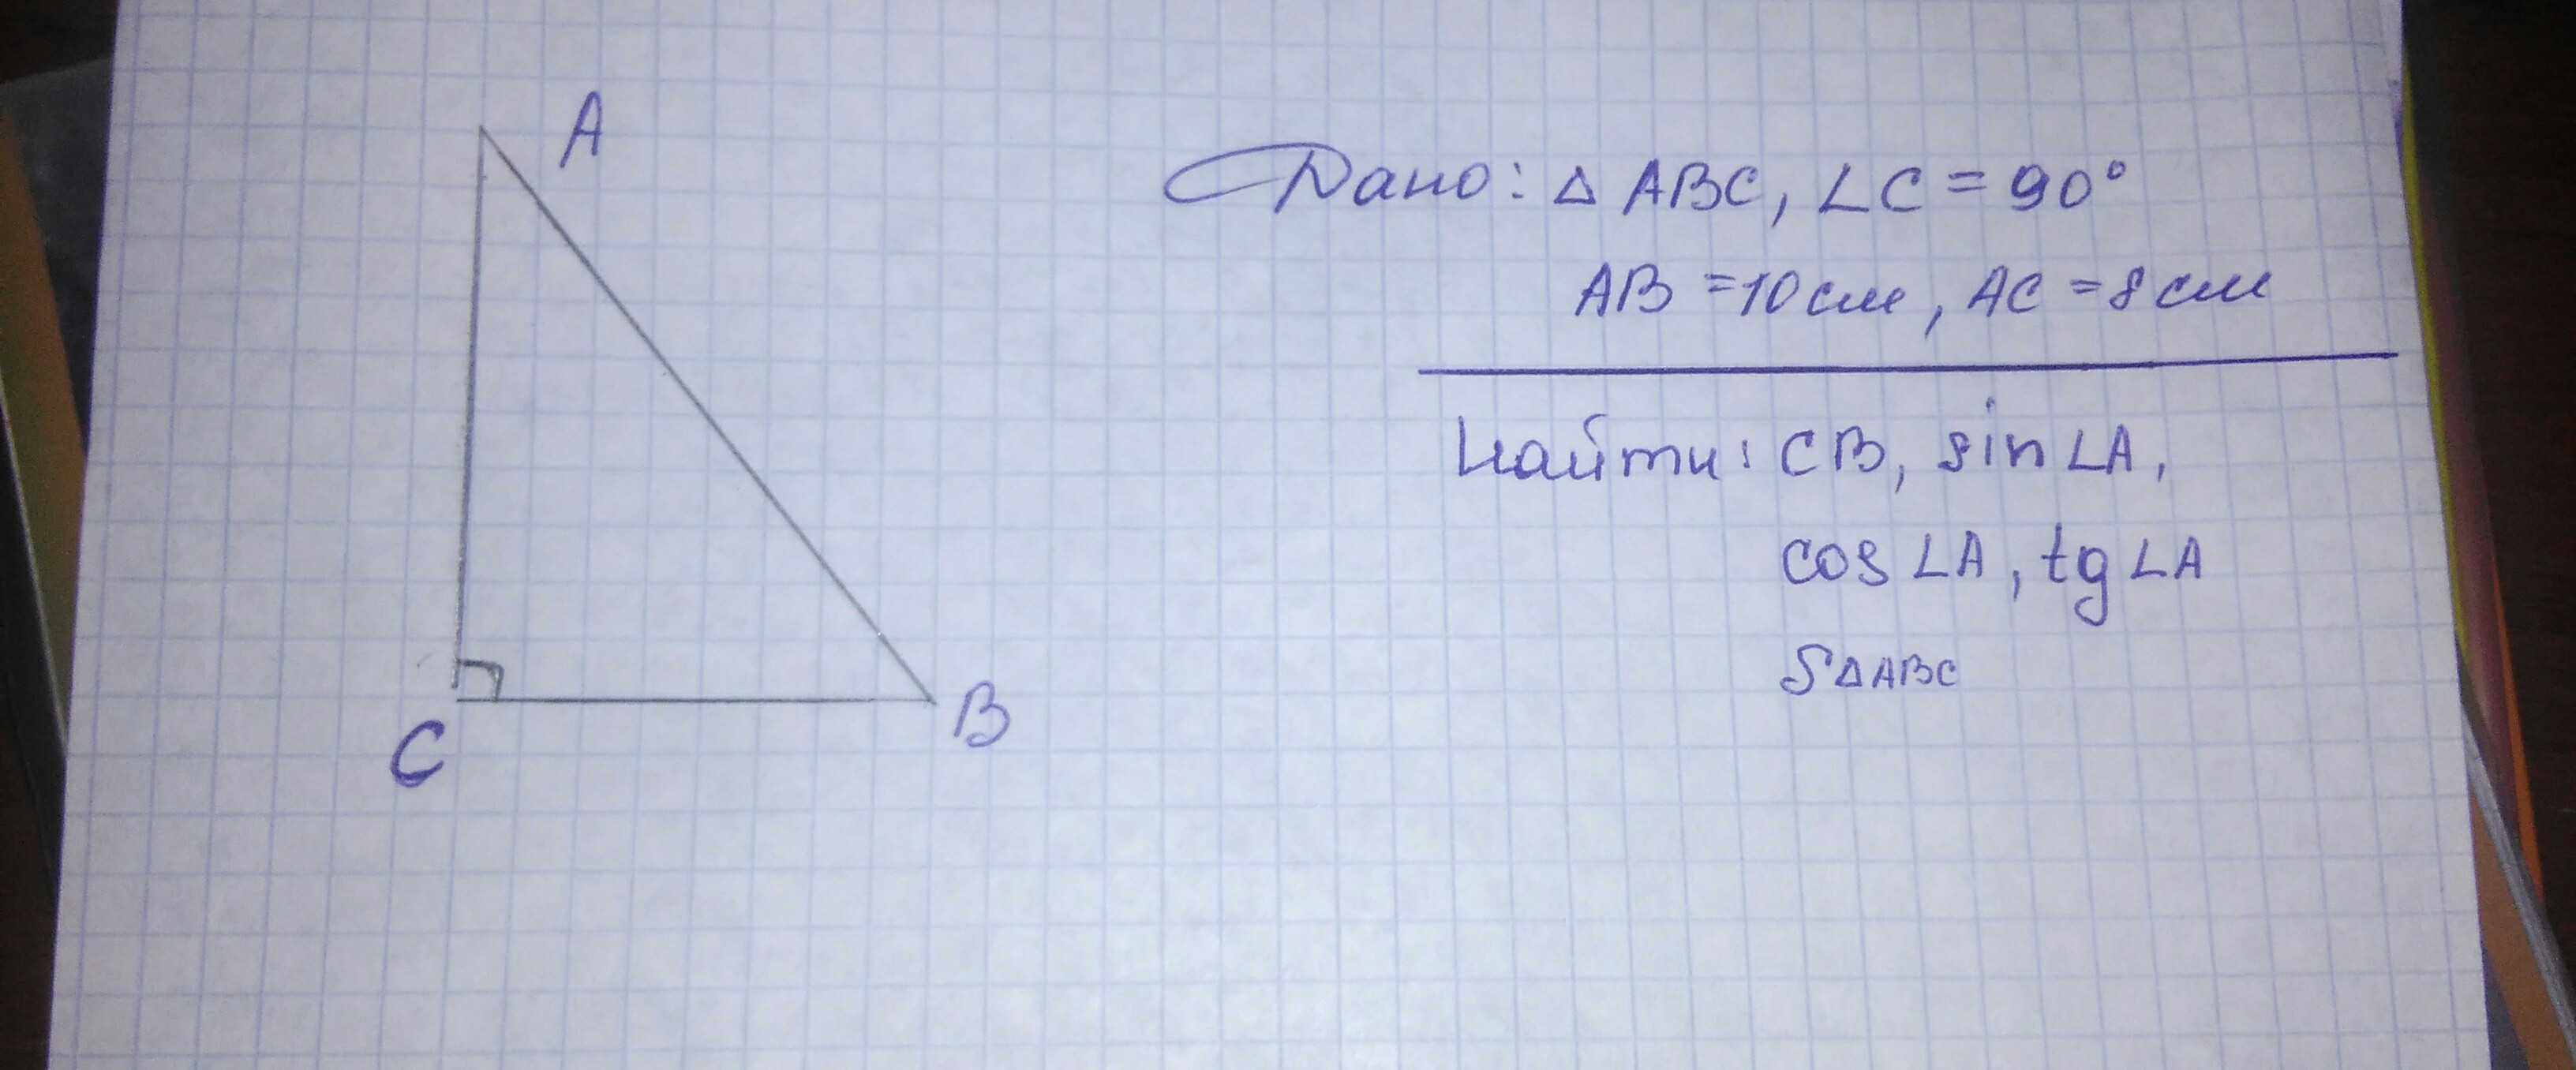 A
C
B
Дано: △ ABC, ∠C = 90°
AB = 10 см, AC = 8 см
Найти: CB, sin ∠A,
cos ∠A, tg ∠A
S△ABC